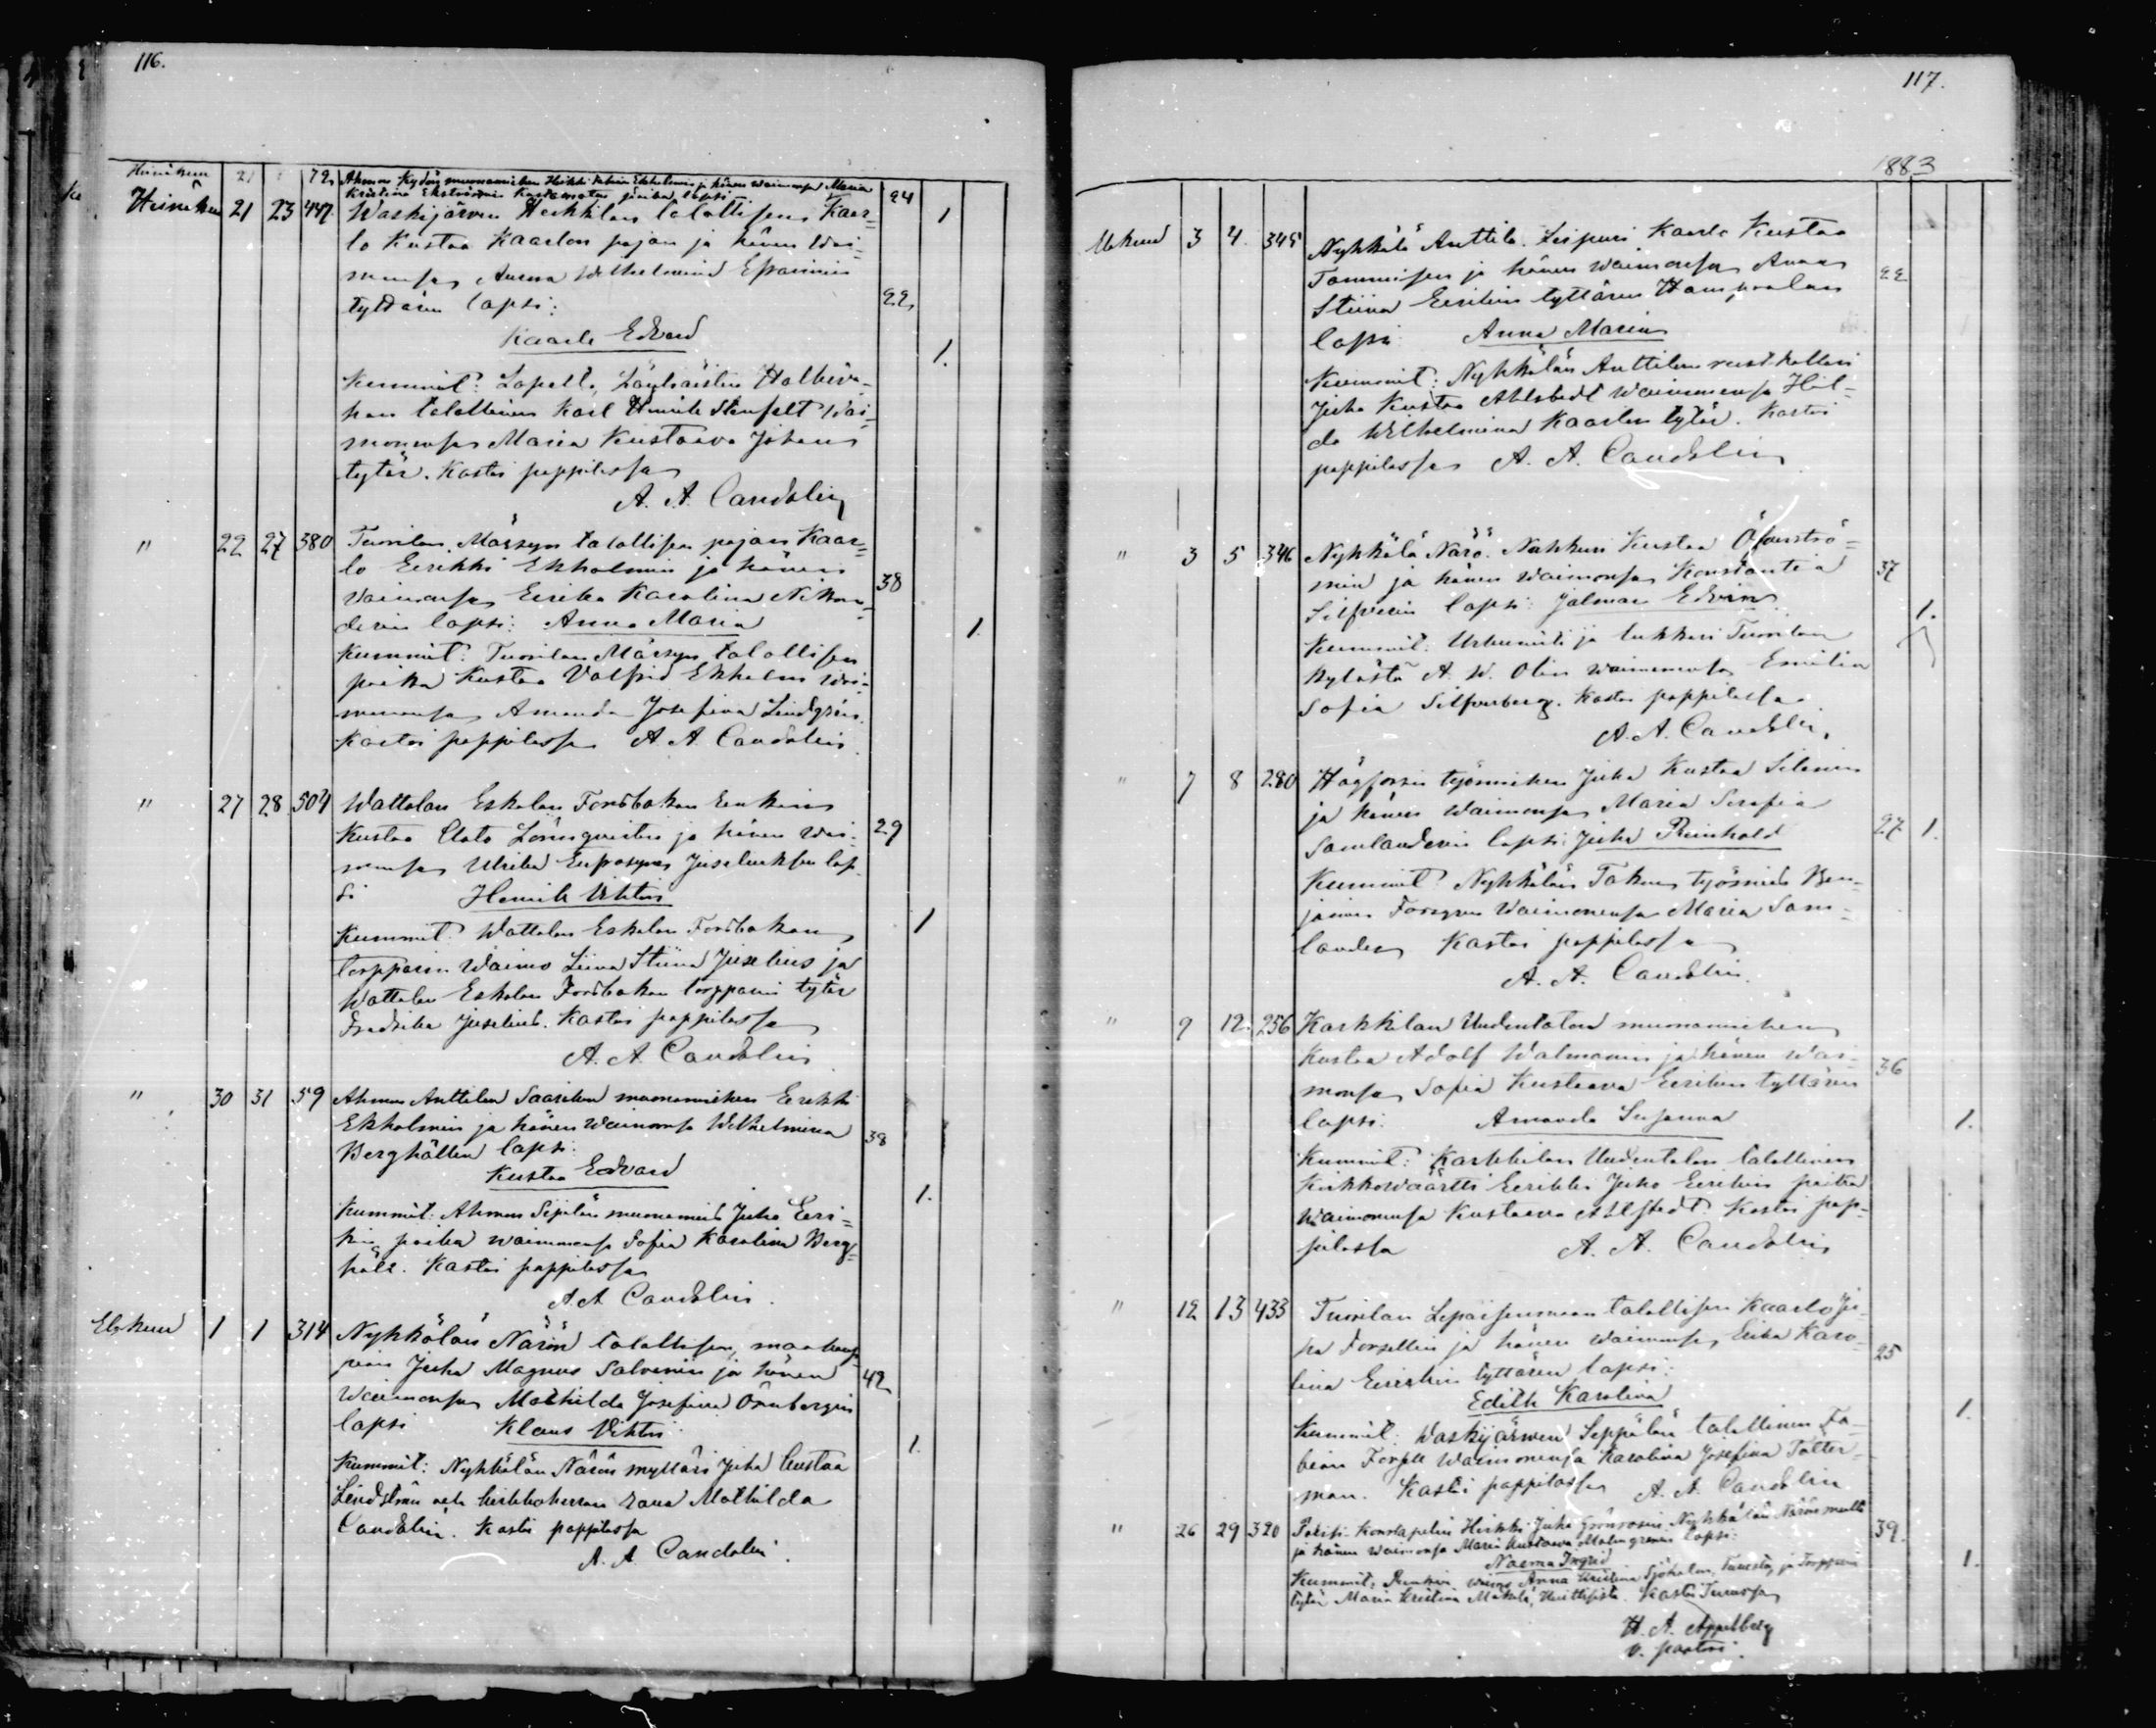 116.
Heinäkuu 21 72 Ahmoo Kydön muonamiehen Heikki Ekholmin ja hänen waimonsa Maria 24
Kristina Ekströmin kastamaton lapsi
Heinäkuu 21 23 447 Waskijärven Heikkilän talollisen Kaar= 1
lo Kustaa Kaarlon pojan ja hänen wai-
monsa Wilhelmina Efraimin
tyttären lapsi: 22
Kaarle Edvard 1.
Kummit: Loperlta, Läyliäisten
talollinen Karl Henrik Stenfelt wai-
monensa Maria Kustaava Johan
tytär. Kastoi pappilassa
A. A. Candolin
" 22 27 380 Tuorilan Märsyn talollisen pojan Kaar=
lo Eerikki Ekholmin ja hänen 38
waimonsa Eerika Karolina Nikan-
derin lapsi: Anna Maria 1.
Kummit: Tuorilan Märsyn talollisen
poika Kustaa Valfrid Ekholm wai-
monensa Amanda Josefina Lindgrén.
Kastoi pappilassa A. A. Candolin
" 27 28 504 Wattolan Eskolan Fordbakan
Kustaa Lönnqvistin ja hänen wai- 29
monsa Ulrika lap
si Henrik Viktor
Kummit: Wattolan Eskolan Fordbakan 1
torpparin waimo Liina Stiina Juselius ja
Wattolan Eskolan Fordbakan torpparin tytär
Fredrika Juselius. Kastoi pappilassa
A. A. Candolin
" 30 31 59 Ahmoo Anttilan Saarikon muonamiehen Eerikki
Ekholmin ja hänen waimonsa Wilhelmina 38
Berghällin lapsi:
Kustaa Edvard
Kummit: Ahmoo Sipilän muonamies Juho Eeri= 1.
kin poika waimonensa Sofia Karolina Berg=
häll. Kastoi pappilassa
A. A. Candolin.
Elokuu 1 1 314 Nyhkälän Närön talollisen,
Juha Magnus Salvenin ja hänen 42
waimonsa Mathilda Josefina Örnbergin
lapsi Klaus Viktor 1.
Kummit: Nyhkälän Närön mylläri Juha Kustaa
Lindström sekä kirkkoherran rouva Mathilda
Candolin. Kastoi pappilassa
A. A. Candolin.
117.
1883
Elokuu 3 4 345 Nyhkälä Anttila. Leipuri Kaarle Kustaa
Tommisen ja hänen waimonsa Anna 22
Stiina Eerikin tyttären
lapsi Anna Maria
Kummit: Nyhkälän Anttilan
Juha Kustaa Ahlstedt waimonensa Hil-
da Wilhelmina Kaarlon tytär. Kastoi
pappilassa A. A. Candolin
" 3 5 346 Nyhkälä Närö. Nahkuri Kustaa Öfverströ=
min ja hänen waimonsa Konstantia 37
Silfverin lapsi: Jalmari Edvin 1.
Kummit: Urkuniekka ja lukkari Tuorilan
kylästä A. W. Olin waimonensa Emilia
Sofia Silfverberg. Kastoi pappilassa
A. A. Candolin.
" 7 8 280 Högforsin työmiehen Juha Kustaa Silenin
ja hänen waimonsa Maria Serafia 27 1.
Samlanderin lapsi: Juha Reinhold
Kummit: Nyhkälän Takon työmies Ben-
jamin Forsgren waimonensa Maria Sam-
lander Kastoi pappilassa
A. A. Candolin.
" 9 12. 256 Karkkilan Uudentalon muonamiehen
Kustaa Adolf Walmanin ja hänen wai- 36
monsa Sofia Kustaava Eerikin tyttären
lapsi. Amanda Susanna 1.
Kummit: Karkkilan Uudentalon talollinen
kirkkowäärtti Eerikki Juho Eerikin poika
waimonensa Kustaava Ahlstedt. Kastoi pap-
pilassa A. A. Candolin
" 12 13 433 Tuorilan talollisen Kaarlo Ju-
ha Forsellin ja hänen waimonsa Erika Karo- 25
lina Eerikin tyttären lapsi:
Edith Karolina 1.
Kummit: Waskijärwen Seppälän talollinen Fa-
bian Forsell waimonensa Karolina Josefina Tatter-
man. Kastoi pappilassa A. A. Candolin
" 26 29 320 Poliisi-Konstapelin Heikki Juha Grönroosin Nyhkälän Närön maalta 39.
ja hänen waimonsa Maria Kustaava Malmgrenin lapsi:
Naema Ingrid 1.
Kummit: waimo Anna Kristina Sjöholm, ja torpparin
tytär Maria Kristina Mäkelä, Kastoi
H. A. Appelberg
v. pastori.